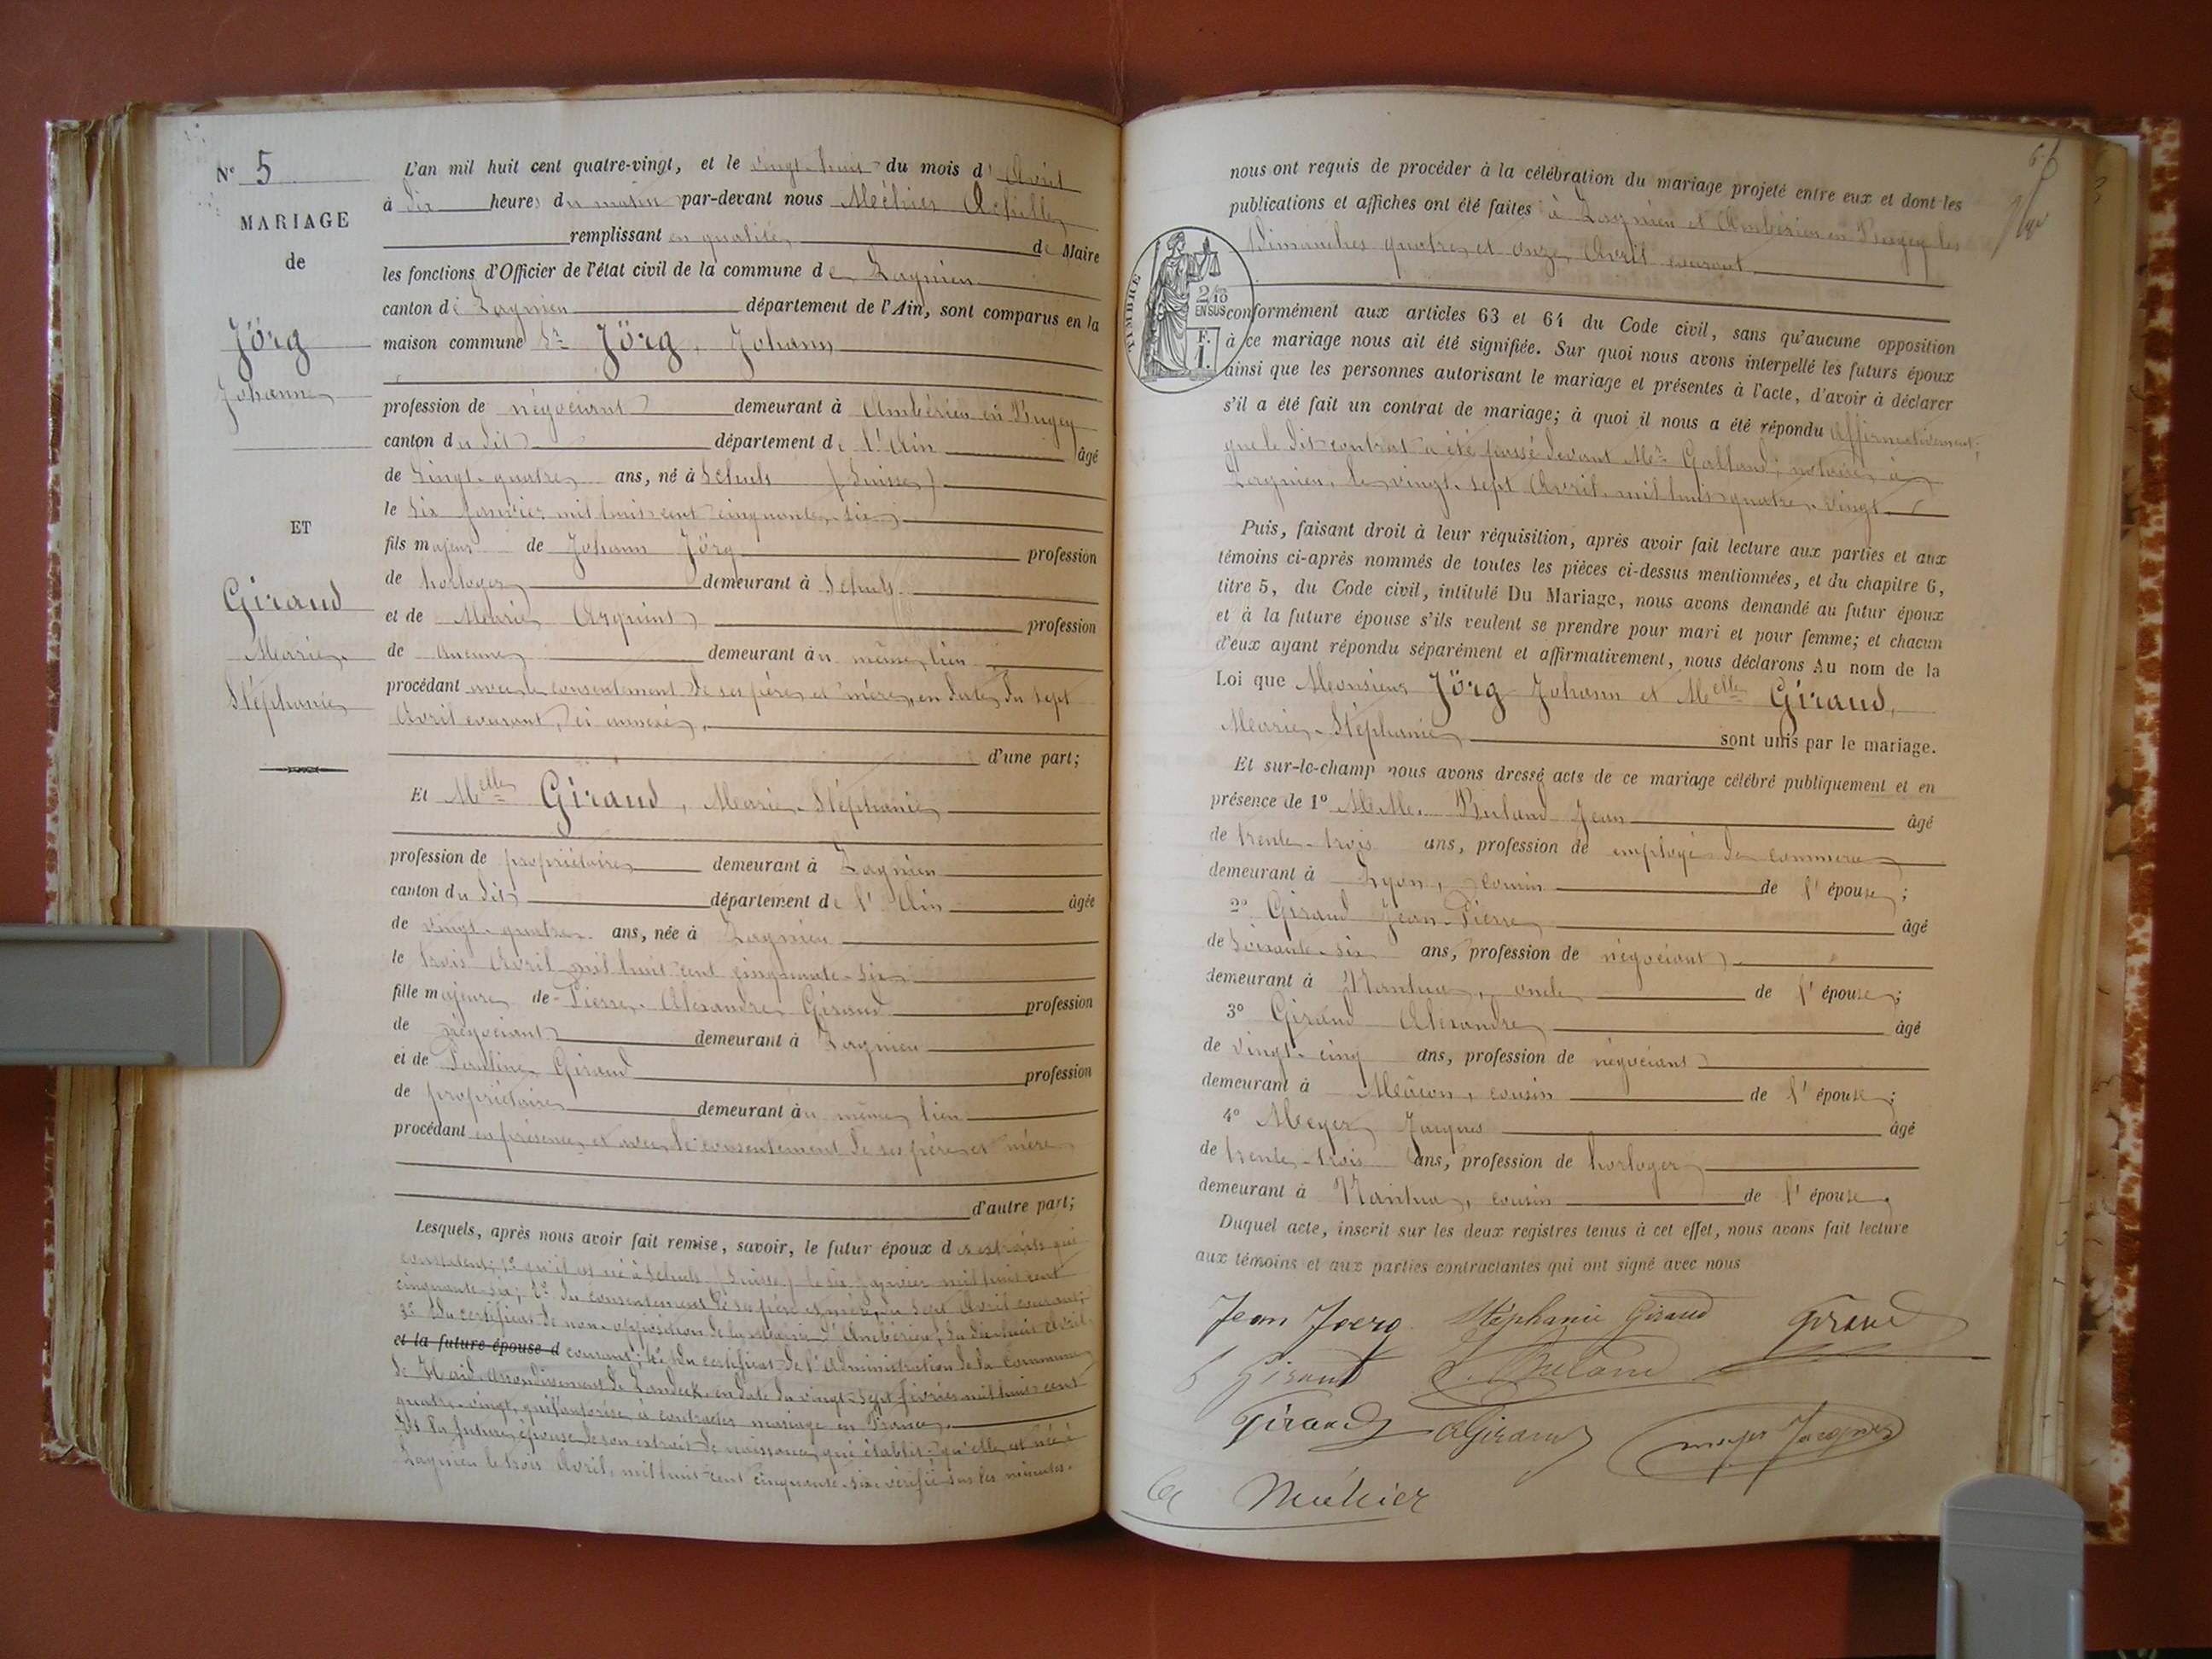 N° 5
MARIAGE
de
Jörg
Johann
ET
Giraud
Marie
Stéphanie
L'an mil huit cent quatre-vingt, et le vingt-huit du mois d'Avril
à dix heures du matin par-devant nous Méhier Achille
remplissant en qualité de Maire
les fonctions d'Officier de l'état civil de la commune de Lagnieu
canton de Lagnieu département de l'Ain, sont comparus en la
maison commune Sr Jörg, Johann
profession de négociant demeurant à Ambérieu en Bugey
canton du dit département de l'Ain âgé
de Vingt-quatre ans, né à Schuls (Suisse)
le six Janvier mil huit cent cinquante-six
fils majeur de Johann Jörg profession
de horloger demeurant à Schuls
et de Marie profession
de aucune demeurant au même lieu
procédant avec le consentement de ses père et mère, en date du sept
Avril courant, ci annexé,
d'une part;
Et Melle Giraud, Marie-Stéphanie
profession de propriétaire demeurant à Lagnieu
canton du dit département de l'Ain âgée
de vingt-quatre ans, née à Lagnieu
le trois Avril mil huit cent cinquante-six
fille majeure de Pierre-Alexandre Giraud profession
de négociant demeurant à Lagnieu
et de Pauline Giraud profession
de propriétaire demeurant au même lieu
procédant en présence et avec le consentement de ses père et mère
d'autre part;
Lesquels, après nous avoir fait remise, savoir, le futur époux des extraits qui
constatent; 1° qu'il est né à Schuls (Suisse) le six Janvier mil huit cent
cinquante-six; 2° du consentement de ses père et mère, du sept Avril courant;
3° du certificat de non-opposition de la Mairie d'Ambérieu, du dix-huit Avril
et la future épouse d courant; 4° du certificat de l'Administration de la Commune
de Haid arrondissement de Landeck, en date du vingt-sept février mil huit cent
quatre-vingt, qui l'autorise à contracter mariage en France.
Et la future épouse de son extrait de naissance qui établit qu'elle est née à
Lagnieu le trois Avril, mil huit cent cinquante-six, vérifié sur les minutes.
nous ont requis de procéder à la célébration du mariage projeté entre eux et dont les
publications et affiches ont été faites à Lagnieu et Ambérieu en Bugey les
Dimanches quatre et onze Avril courant
TIMBRE
2/10
EN SUS
F.
1.
conformément aux articles 63 et 64 du Code civil, sans qu'aucune opposition
à ce mariage nous ait été signifiée. Sur quoi nous avons interpellé les futurs époux
ainsi que les personnes autorisant le mariage et présentes à l'acte, d'avoir à déclarer
s'il a été fait un contrat de mariage; à quoi il nous a été répondu affirmativement;
que le dit contrat a été passé devant Me Galland, notaire à
Lagnieu, le vingt-sept Avril mil huit quatre-vingt.
Puis, faisant droit à leur réquisition, après avoir fait lecture aux parties et aux
témoins ci-après nommés de toutes les pièces ci-dessus mentionnées, et du chapitre 6,
titre 5, du Code civil, intitulé Du Mariage, nous avons demandé au futur époux
et à la future épouse s'ils veulent se prendre pour mari et pour femme; et chacun
d'eux ayant répondu séparément et affirmativement, nous déclarons Au nom de la
Loi que Monsieur Jörg Johann et Melle Giraud,
Marie-Stéphanie sont unis par le mariage.
Et sur-le-champ nous avons dressé acte de ce mariage célébré publiquement et en
présence de 1° MM. Ruland Jean âgé
de trente-trois ans, profession de employé de commerce
demeurant à Lyon, cousin de l'épouse;
2° Giraud Jean-Pierre âgé
de soixante-six ans, profession de négociant
demeurant à Nantua, oncle de l'épouse;
3° Giraud Alexandre âgé
de vingt-cinq ans, profession de négociant
demeurant à Mâcon, cousin de l'épouse;
4° Meyer Jacques âgé
de trente-trois ans, profession de horloger
demeurant à Nantua, cousin de l'épouse.
Duquel acte, inscrit sur les deux registres tenus à cet effet, nous avons fait lecture
aux témoins et aux parties contractantes qui ont signé avec nous
Jean Joerg Stéphanie Giraud Giraud
Giraud J. Ruland
Giraud A Giraud meyer Jacques
Méhier